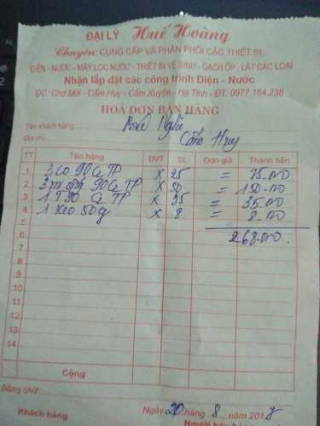 ĐẠI LÝ Huế Hoàng
Chuyên: CUNG CẤP VÀ PHÂN PHỐI CÁC THIẾT BỊ:
ĐIỆN - NƯỚC - MÁY LỌC NƯỚC - THIẾT BỊ VỆ SINH - GẠCH ỐP, LÁT CÁC LOẠI
Nhận lắp đặt các công trình Điện - Nước
ĐC: Chợ Mới - Cẩm Huy - Cẩm Xuyên - Hà Tĩnh - ĐT: 0977.164.238
HOÁ ĐƠN BÁN HÀNG
Tên khách hàng: Nghĩa
Địa chỉ: Cẩm Huy
TT Tên hàng ĐVT SL Đơn giá Thành tiền
1 3 co 90 TP x 25 = 75.000
2 3 90 TP x 50 = 150.000
3 1 T 90 TP x 35 = 35.000
4 1 keo 50g x 8 = 8.000
5
6 268.000
7
8
9
10
11
12
13
14
Cộng
Bằng chữ:
Ngày 20 tháng 8 năm 201
Khách hàng